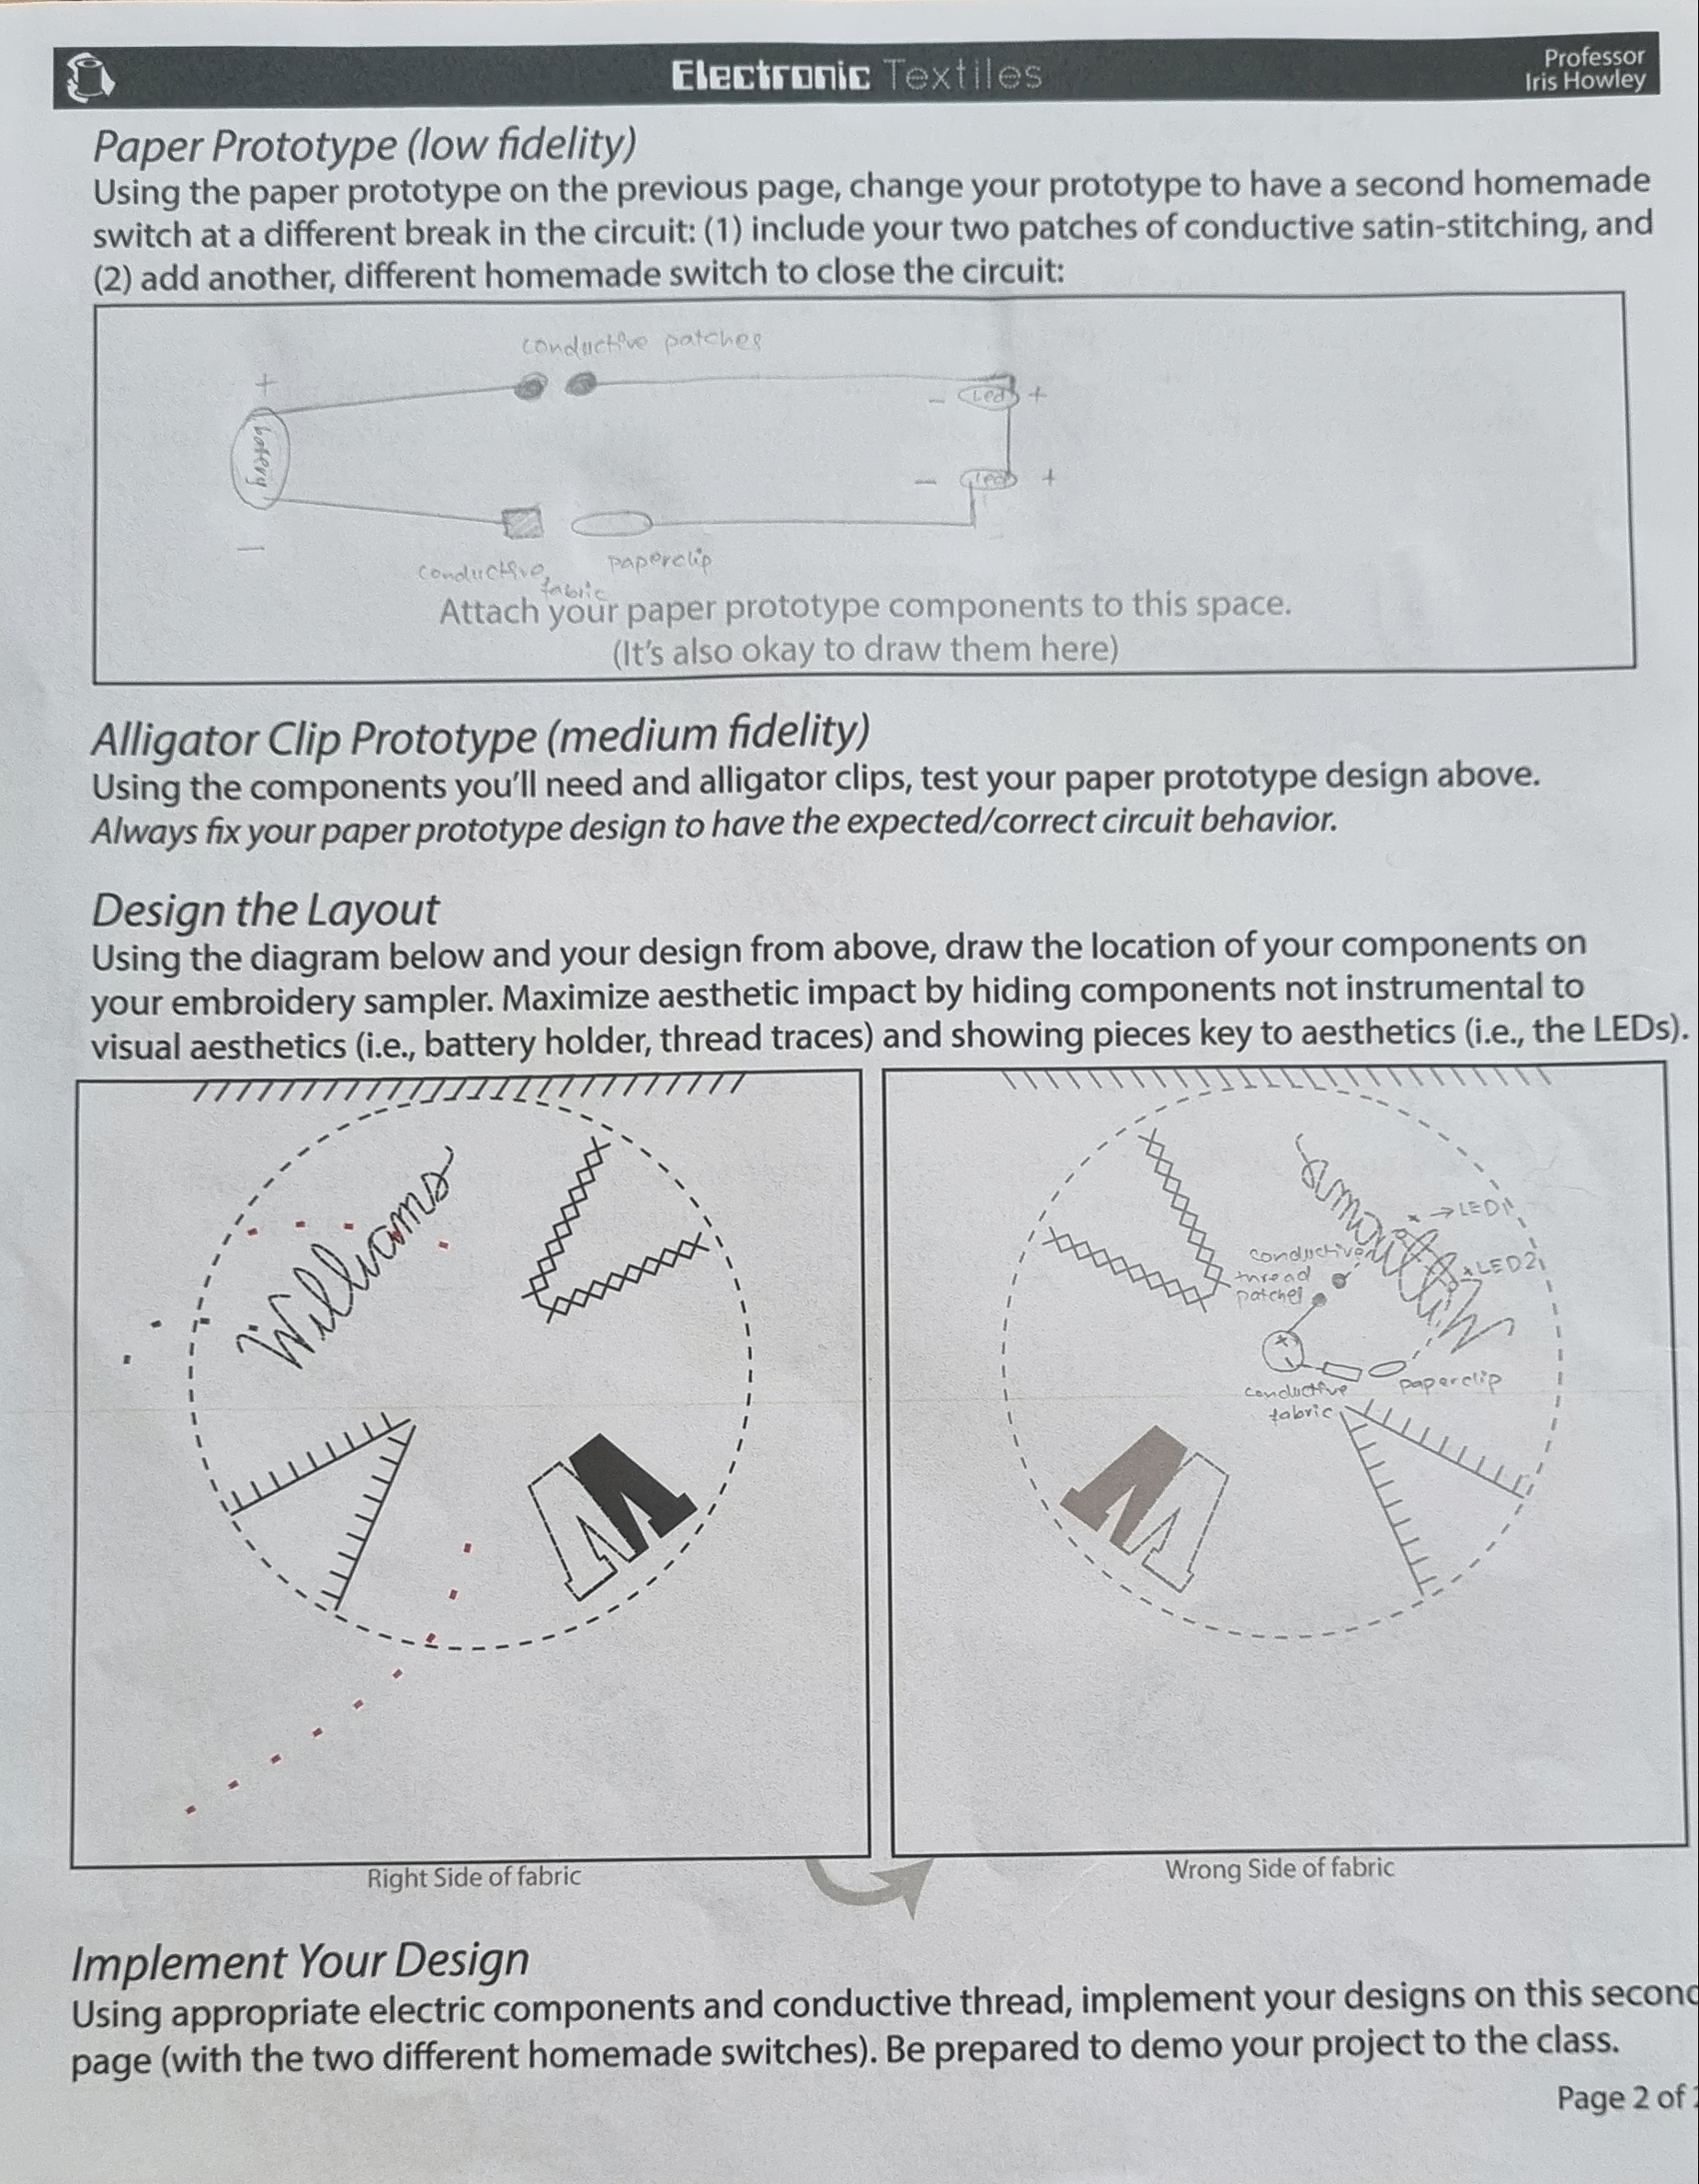 Electronic Textiles
Professor
Iris Howley
Paper Prototype (low fidelity)
Using the paper prototype on the previous page, change your prototype to have a second homemade
switch at a different break in the circuit: (1) include your two patches of conductive satin-stitching, and
(2) add another, different homemade switch to close the circuit:
conductive patches
+
battery
−
− Led +
− Led +
conductive
fabric
paperclip
Attach your paper prototype components to this space.
(It's also okay to draw them here)
Alligator Clip Prototype (medium fidelity)
Using the components you'll need and alligator clips, test your paper prototype design above.
Always fix your paper prototype design to have the expected/correct circuit behavior.
Design the Layout
Using the diagram below and your design from above, draw the location of your components on
your embroidery sampler. Maximize aesthetic impact by hiding components not instrumental to
visual aesthetics (i.e., battery holder, thread traces) and showing pieces key to aesthetics (i.e., the LEDs).
Williams
W
Right Side of fabric
Williams
→LED1
+LED2
conductive
thread
patches
+
−
conductive
fabric
paperclip
W
Wrong Side of fabric
Implement Your Design
Using appropriate electric components and conductive thread, implement your designs on this second
page (with the two different homemade switches). Be prepared to demo your project to the class.
Page 2 of